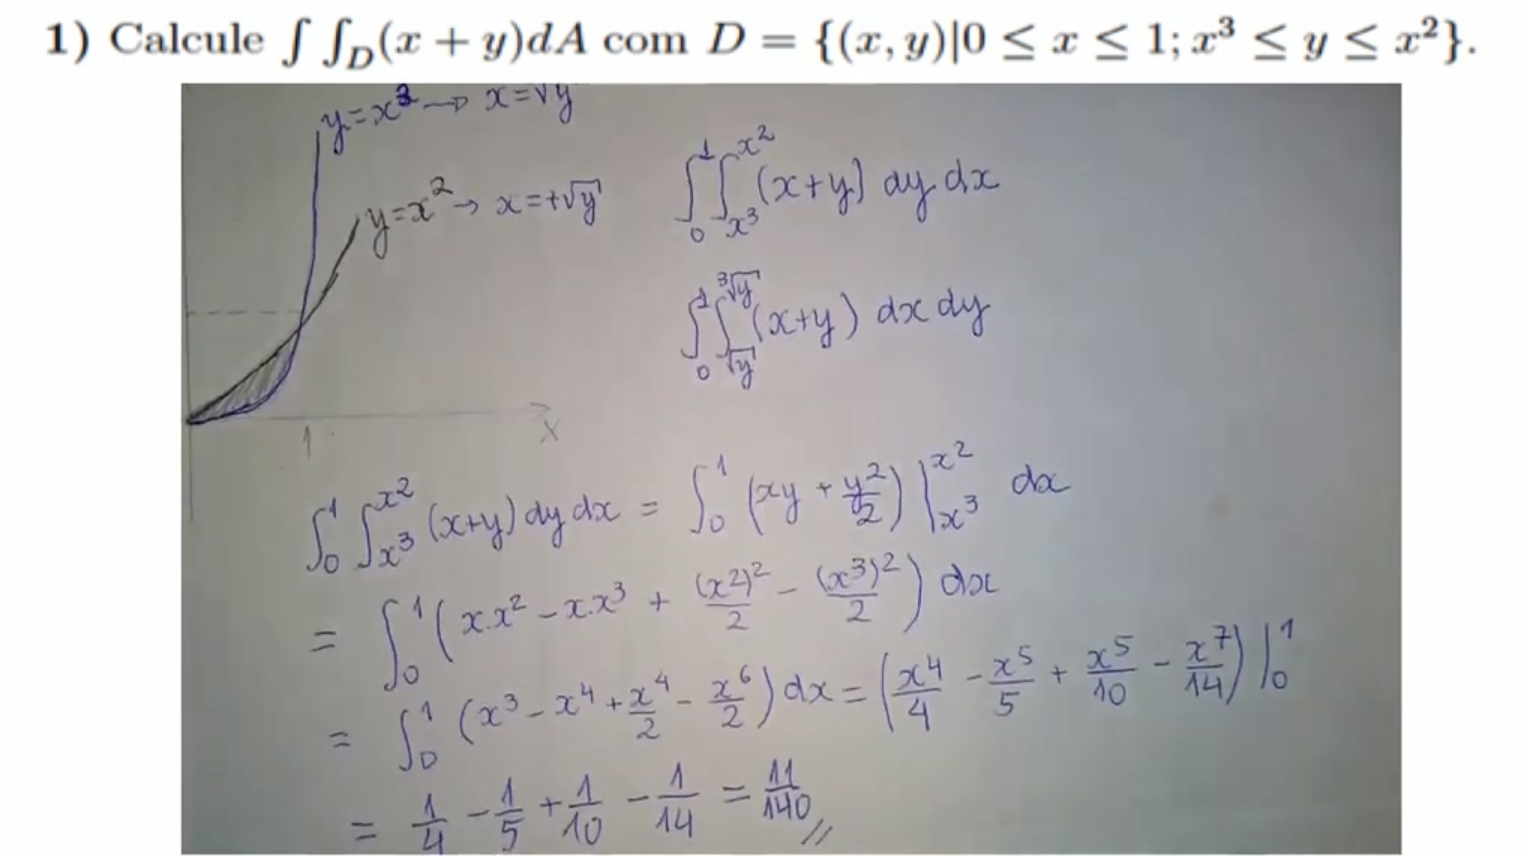 1) Calcule ∫∫_D(x + y)dA com D = {(x, y)|0 ≤ x ≤ 1; x³ ≤ y ≤ x²}.
y=x³ → x=√y
y=x² → x=+√y
∫₀¹ ∫_{x³}^{x²} (x+y) dy dx
∫₀¹ ∫_{√y}^{³√y} (x+y) dx dy
1
x
∫₀¹ ∫_{x³}^{x²} (x+y) dy dx = ∫₀¹ (xy + y²/2) |_{x³}^{x²} dx
= ∫₀¹ (x.x² - x.x³ + (x²)²/2 - (x³)²/2) dx
= ∫₀¹ (x³ - x⁴ + x⁴/2 - x⁶/2) dx = (x⁴/4 - x⁵/5 + x⁵/10 - x⁷/14) |₀¹
= 1/4 - 1/5 + 1/10 - 1/14 = 11/140 //